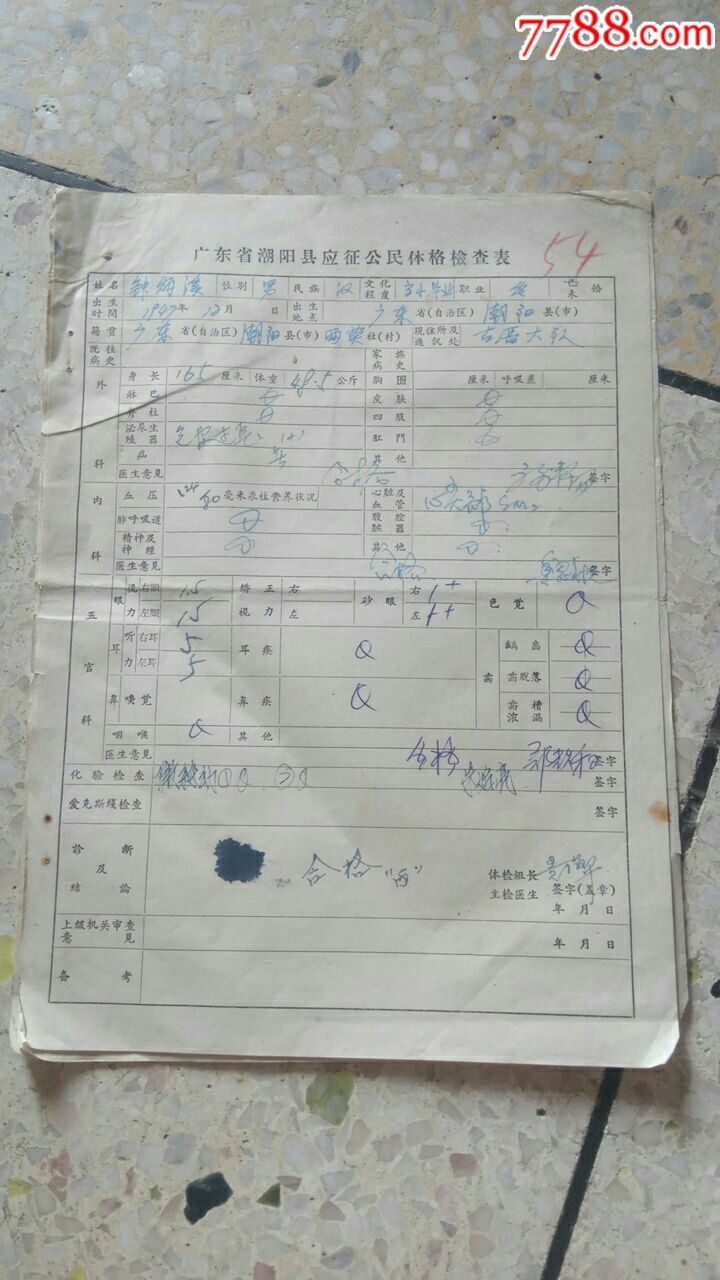 7788.com
广东省潮阳县应征公民体格检查表
54
姓名 性别 男 民族 汉 文化程度 毕业 职业 已未婚
出生时间 1947年12月 日 出生地点 广东省(自治区)潮阳县(市)
籍贯 广东省(自治区)潮阳县(市)两英社(村) 现住所及通讯处 古厝大队
既往病史 家族病史
外科 身长 165厘米 体重 48.5公斤 胸围 厘米 呼吸差 厘米
淋巴 皮肤
脊柱 四肢
泌尿生殖器 肛門
疝 其他
医生意見 合格 签字
内科 血压 124 80毫米汞柱营养状况 心脏及血管
肺呼吸道 腹腔脏器
精神及神經 其他
医生意見 合格 签字
五官科 眼 視力 右眼 1.5 矫正視力 右 砂眼 右 + 色觉
左眼 1.5 左 左 ++
耳 听力 右耳 5 耳疾 齿 齲齿
左耳 5 齿脱落
鼻 嗅觉 鼻疾 齿槽浓漏
咽喉 其他
医生意見 合格 签字
化验检查 签字
爱克斯綫检查 签字
診断及結論 合格“丙” 体检組长
主检医生 签字(盖章)
年月日
上級机关审查意見 年月日
备考